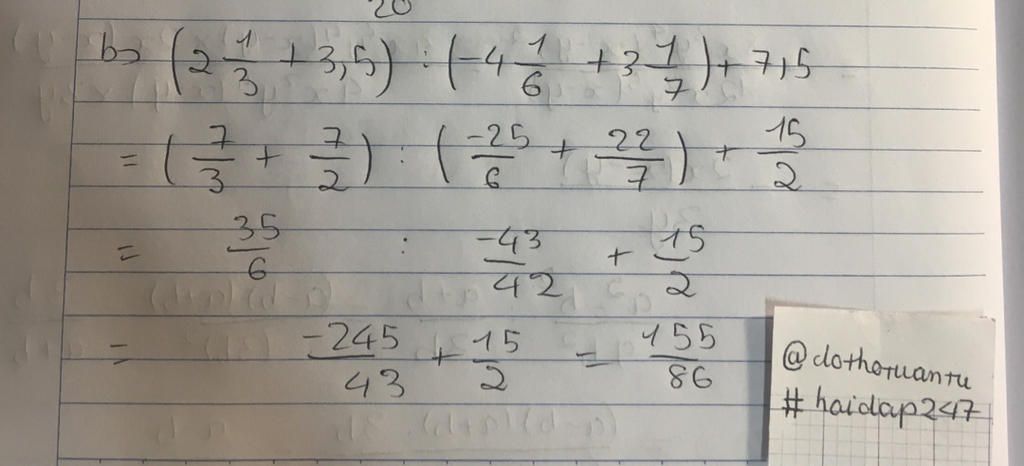 20
b> (2 1/3 + 3,5) : (-4 1/6 + 3 1/7) + 7,5
= (7/3 + 7/2) : (-25/6 + 22/7) + 15/2
= 35/6 : -43/42 + 15/2
= -245/43 + 15/2 = 155/86
@dothotuantu
# haidap247